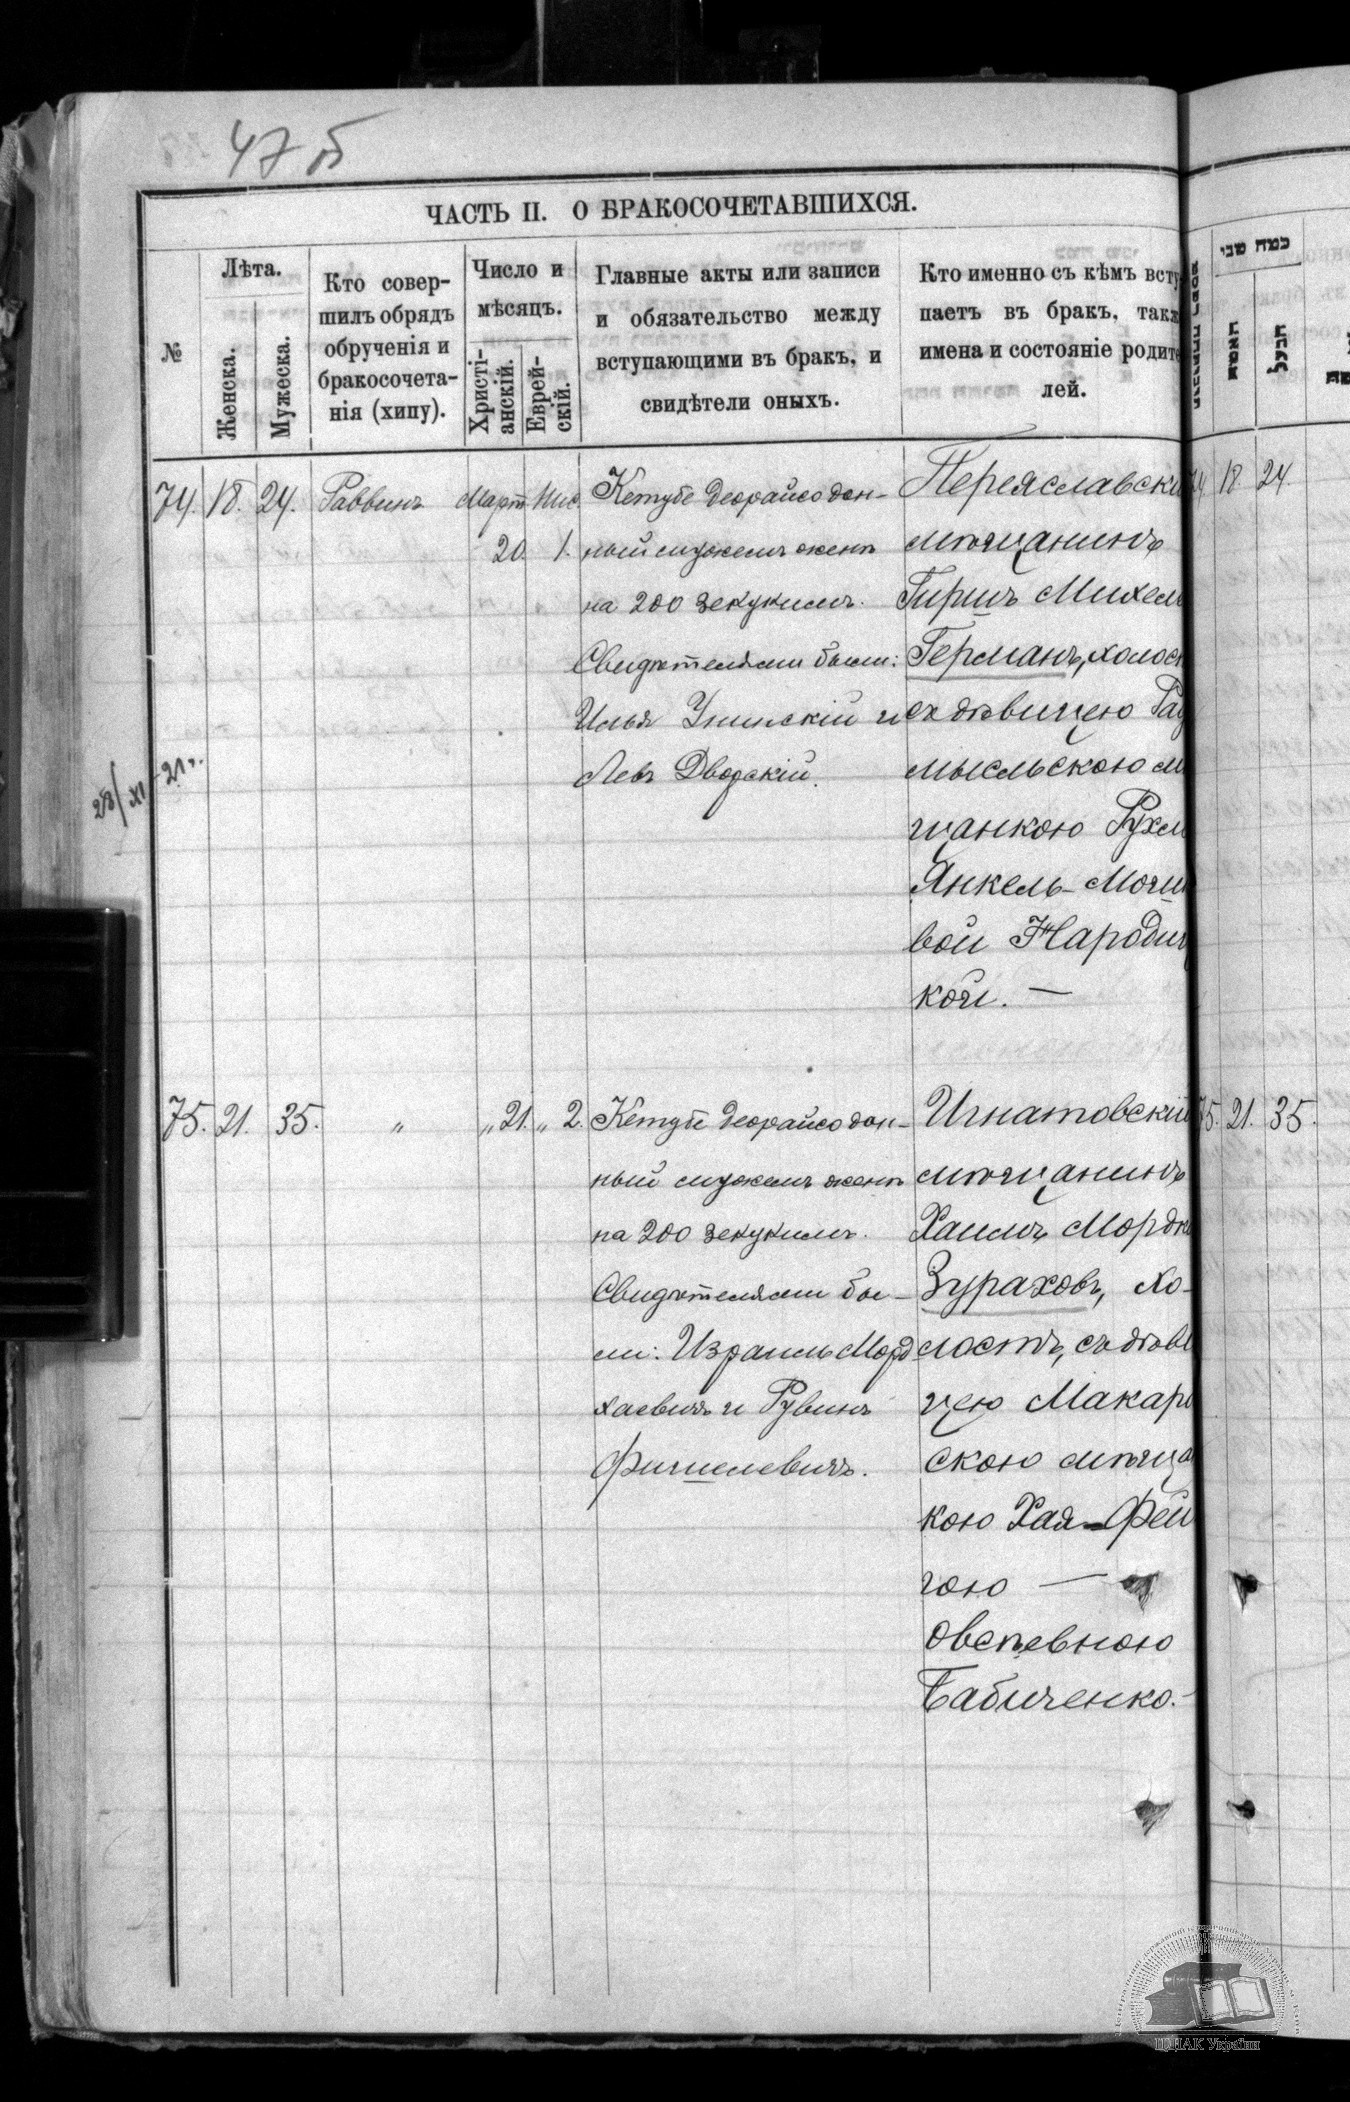 47 об
ЧАСТЬ II. О БРАКОСОЧЕТАВШИХСЯ.
№
Лѣта.
Женска.
Мужеска.
Кто совер-
шилъ обрядъ
обрученія и
бракосочета-
нія (хипу).
Число и
мѣсяцъ.
Христі-
анскій.
Еврей-
скій.
Главные акты или записи
и обязательство между
вступающими въ бракъ, и
свидѣтели оныхъ.
Кто именно съ кѣмъ всту
паетъ въ бракъ, такж
имена и состояніе родите
лей.
כמה שני
האשה
הבעל
74. 18. 24. Раввинъ Март. Нис.
20. 1.
Кетубе деорайсо дан-
ный мужемъ женѣ
на 200 зекукимъ.
Свидѣтелями были:
Илья и
Левъ Дворскій.
Переяславски
мѣщанинъ
Гиршъ Михел
Германъ, холост
съ дѣвицею Рад
мысльскою м
щанкою Рухл
Янкель-Мошк
вой Народиц
кой. —
28/XI-21г.
74. 18. 24.
75. 21. 35. " " 21. " 2.
Кетубе деорайсо дан-
ный мужемъ женѣ
на 200 зекукимъ.
Свидѣтелями бы-
ли: ИзраильМорд
хаевичъ и Рувинъ
Фишелевичъ.
Игнатовскій
мѣщанинъ
Хаимъ Мордк
Зураховъ, хо-
лостъ, съ дѣви
цею Макаро
скою мѣща
кою Хая-Фей
гою —
Овсѣевною
Бабиченко.-
75. 21. 35.
ЦДІАК України